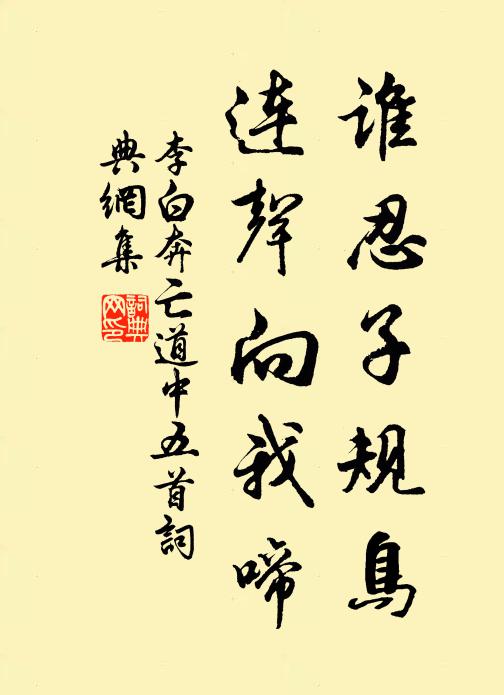 誰忍子規鳥
連聲向我啼
李白奔亡道中五首詞
典網集
詞典
网印